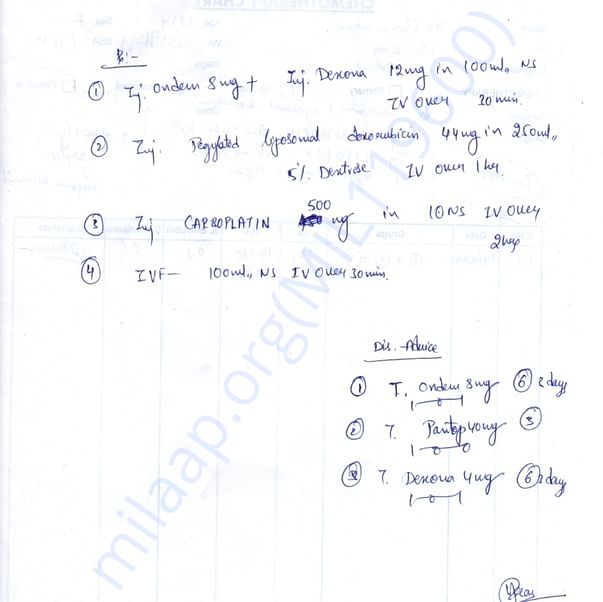 Rx:-
① Inj. Ondem 8mg + Inj. Dexona 12mg in 100ml,, NS
IV over 20 min.
② Inj. Pegylated liposomal doxorubicin 44mg in 250ml,,
5%. Dextrose IV over 1 hr.
500
③ Inj CARBOPLATIN mg in 10NS IV over
2hrs
④ IVF- 100ml,, NS IV over 30min.
Dis. - Advice
① T. Ondem 8mg ⑥ 2 days
1-0-1
② T. Pantop 40mg ③
1-0-0
③ T. Dexona 4mg ⑥ 2 days
1-0-1
milaap.org(MIL119600)